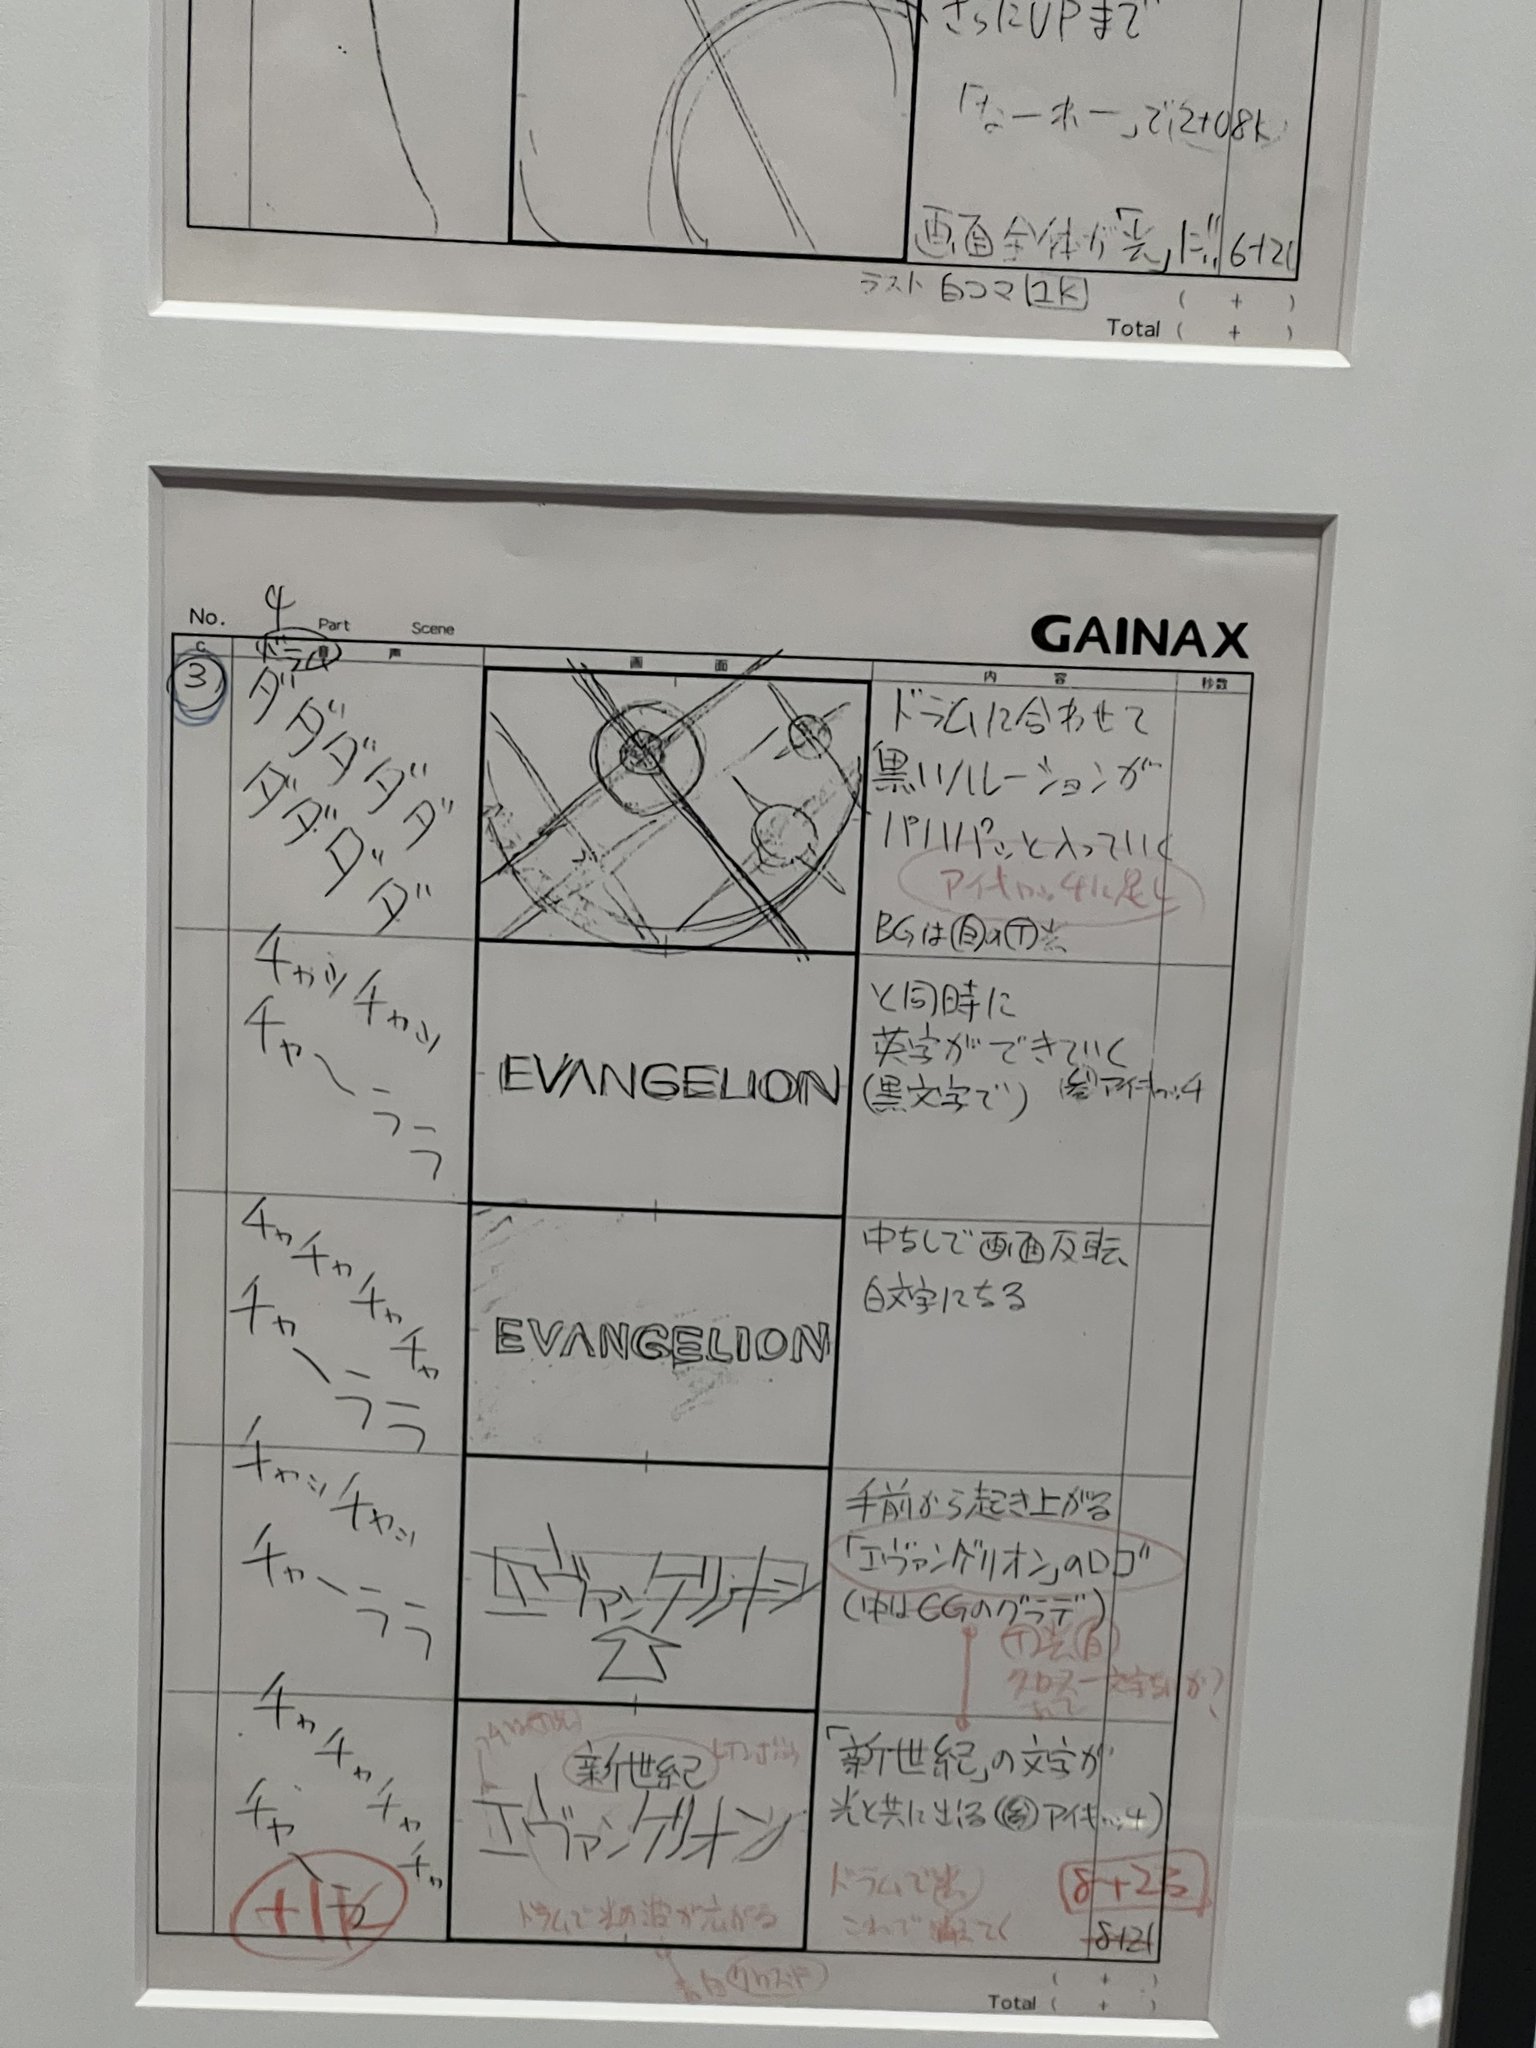 さらにUPまで
画面全体が「光」に
6+21
ラスト6コマ(1K)
( + )
Total ( + )
No. 4 Part Scene
GAINAX
C 音 声 画 面 内 容 秒数
3
ドラム
ダダダダダ
ダダダダ
ドラムに合わせて
黒いリレーションが
パパパッと入っていく
BGは白のT光
チャッチャッ
チャーララ
EVANGELION
と同時に
英字ができていく
(黒文字で) 参アイキャッ4
チャチャチャチャ
チャーララ
EVANGELION
画面反転
白文字になる
チャッチャッ
チャーララ
エヴァンゲリオン
手前から起き上がる
「エヴァンゲリオン」のロゴ
(中はCGのグラデ)
チャチャチャチャ
チャー
+1秒
新世紀
エヴァンゲリオン
ドラムで光の波が広がる
「新世紀」の文字が
光と共に出る(参アイキャッ4)
ドラムで
8+23
8+21
( + )
Total ( + )